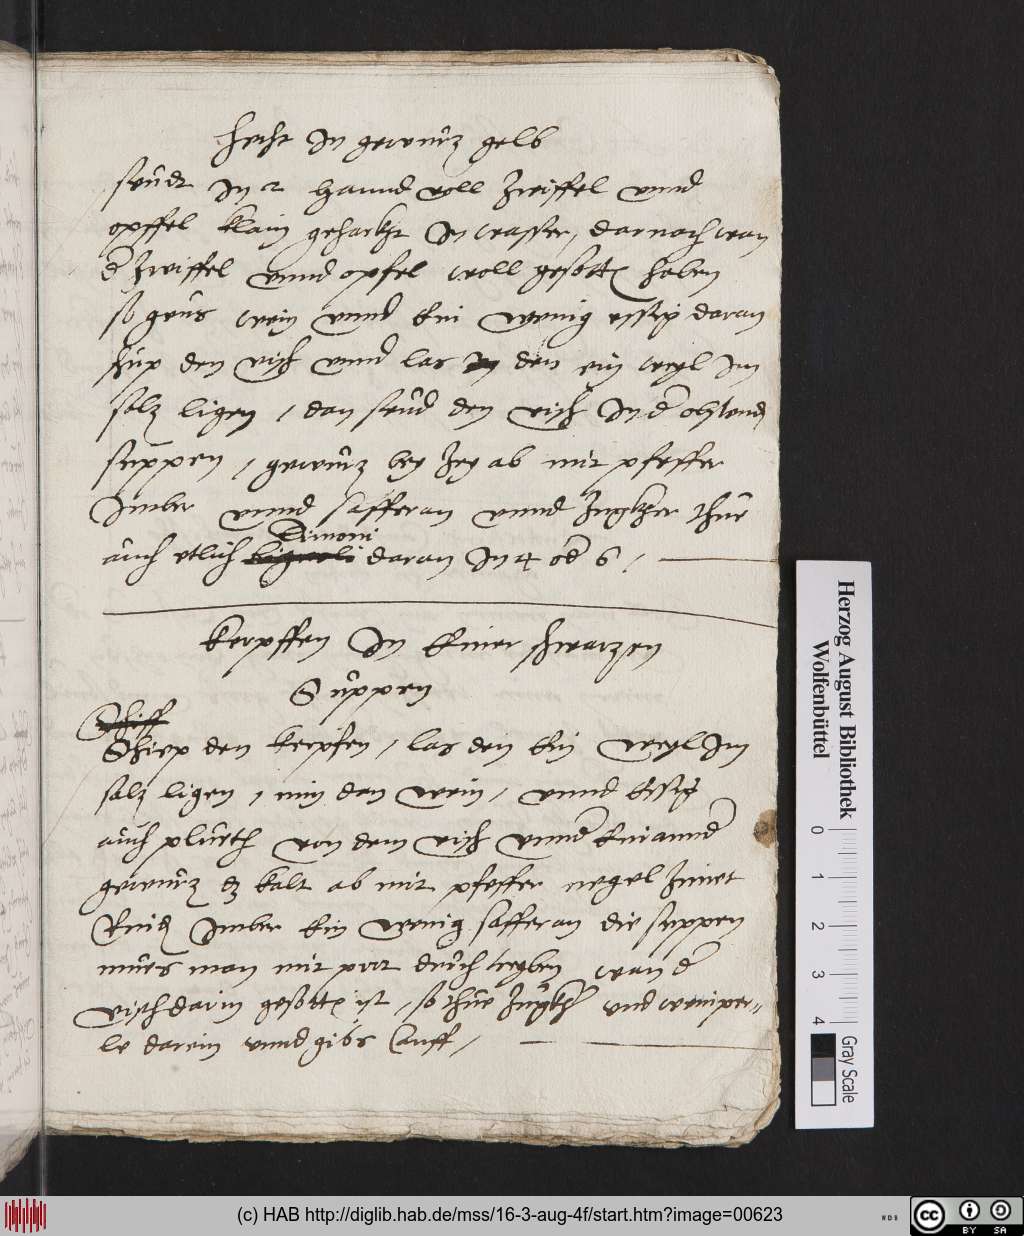 Hecht In gewurz gelb
seudt In 2 hannd voll Zwiffel unnd
opffel klain gehackht In wasser, darnach wan
d Zwiffel unnd opfel woll gesotten haben
so geus wein unnd Ein wenig essig daran
schup den visch unnd las in den ein weyl Im
salz ligen, dan seud den visch In d obstend
suppen, gewurz bey Zey ab mit pfeffer
Imber unnd saffran unnd Zugkher thue
auch etlich Limoni daran In 4 od 6,
Kerpffen In Einer schwarzen
Suppen
Schiep den kerpfen, las den Ein weyl Im
salz ligen, nim dan wein, unnd Essig
auch plueth von dem visch unnd Einannd
gewurz es kalt ab mit pfeffer negel Zimet
Rindt Imber Ein wenig saffran die suppen
mues man mit prot durch treyben wan d
visch darin gesotten ist, so thue Zugkher und weinper-
le darein unnd gibs auff,
Herzog August Bibliothek
Wolfenbüttel
0 1 2 3 4 Gray Scale
(c) HAB http://diglib.hab.de/mss/16-3-aug-4f/start.htm?image=00623
WDB
cc BY SA